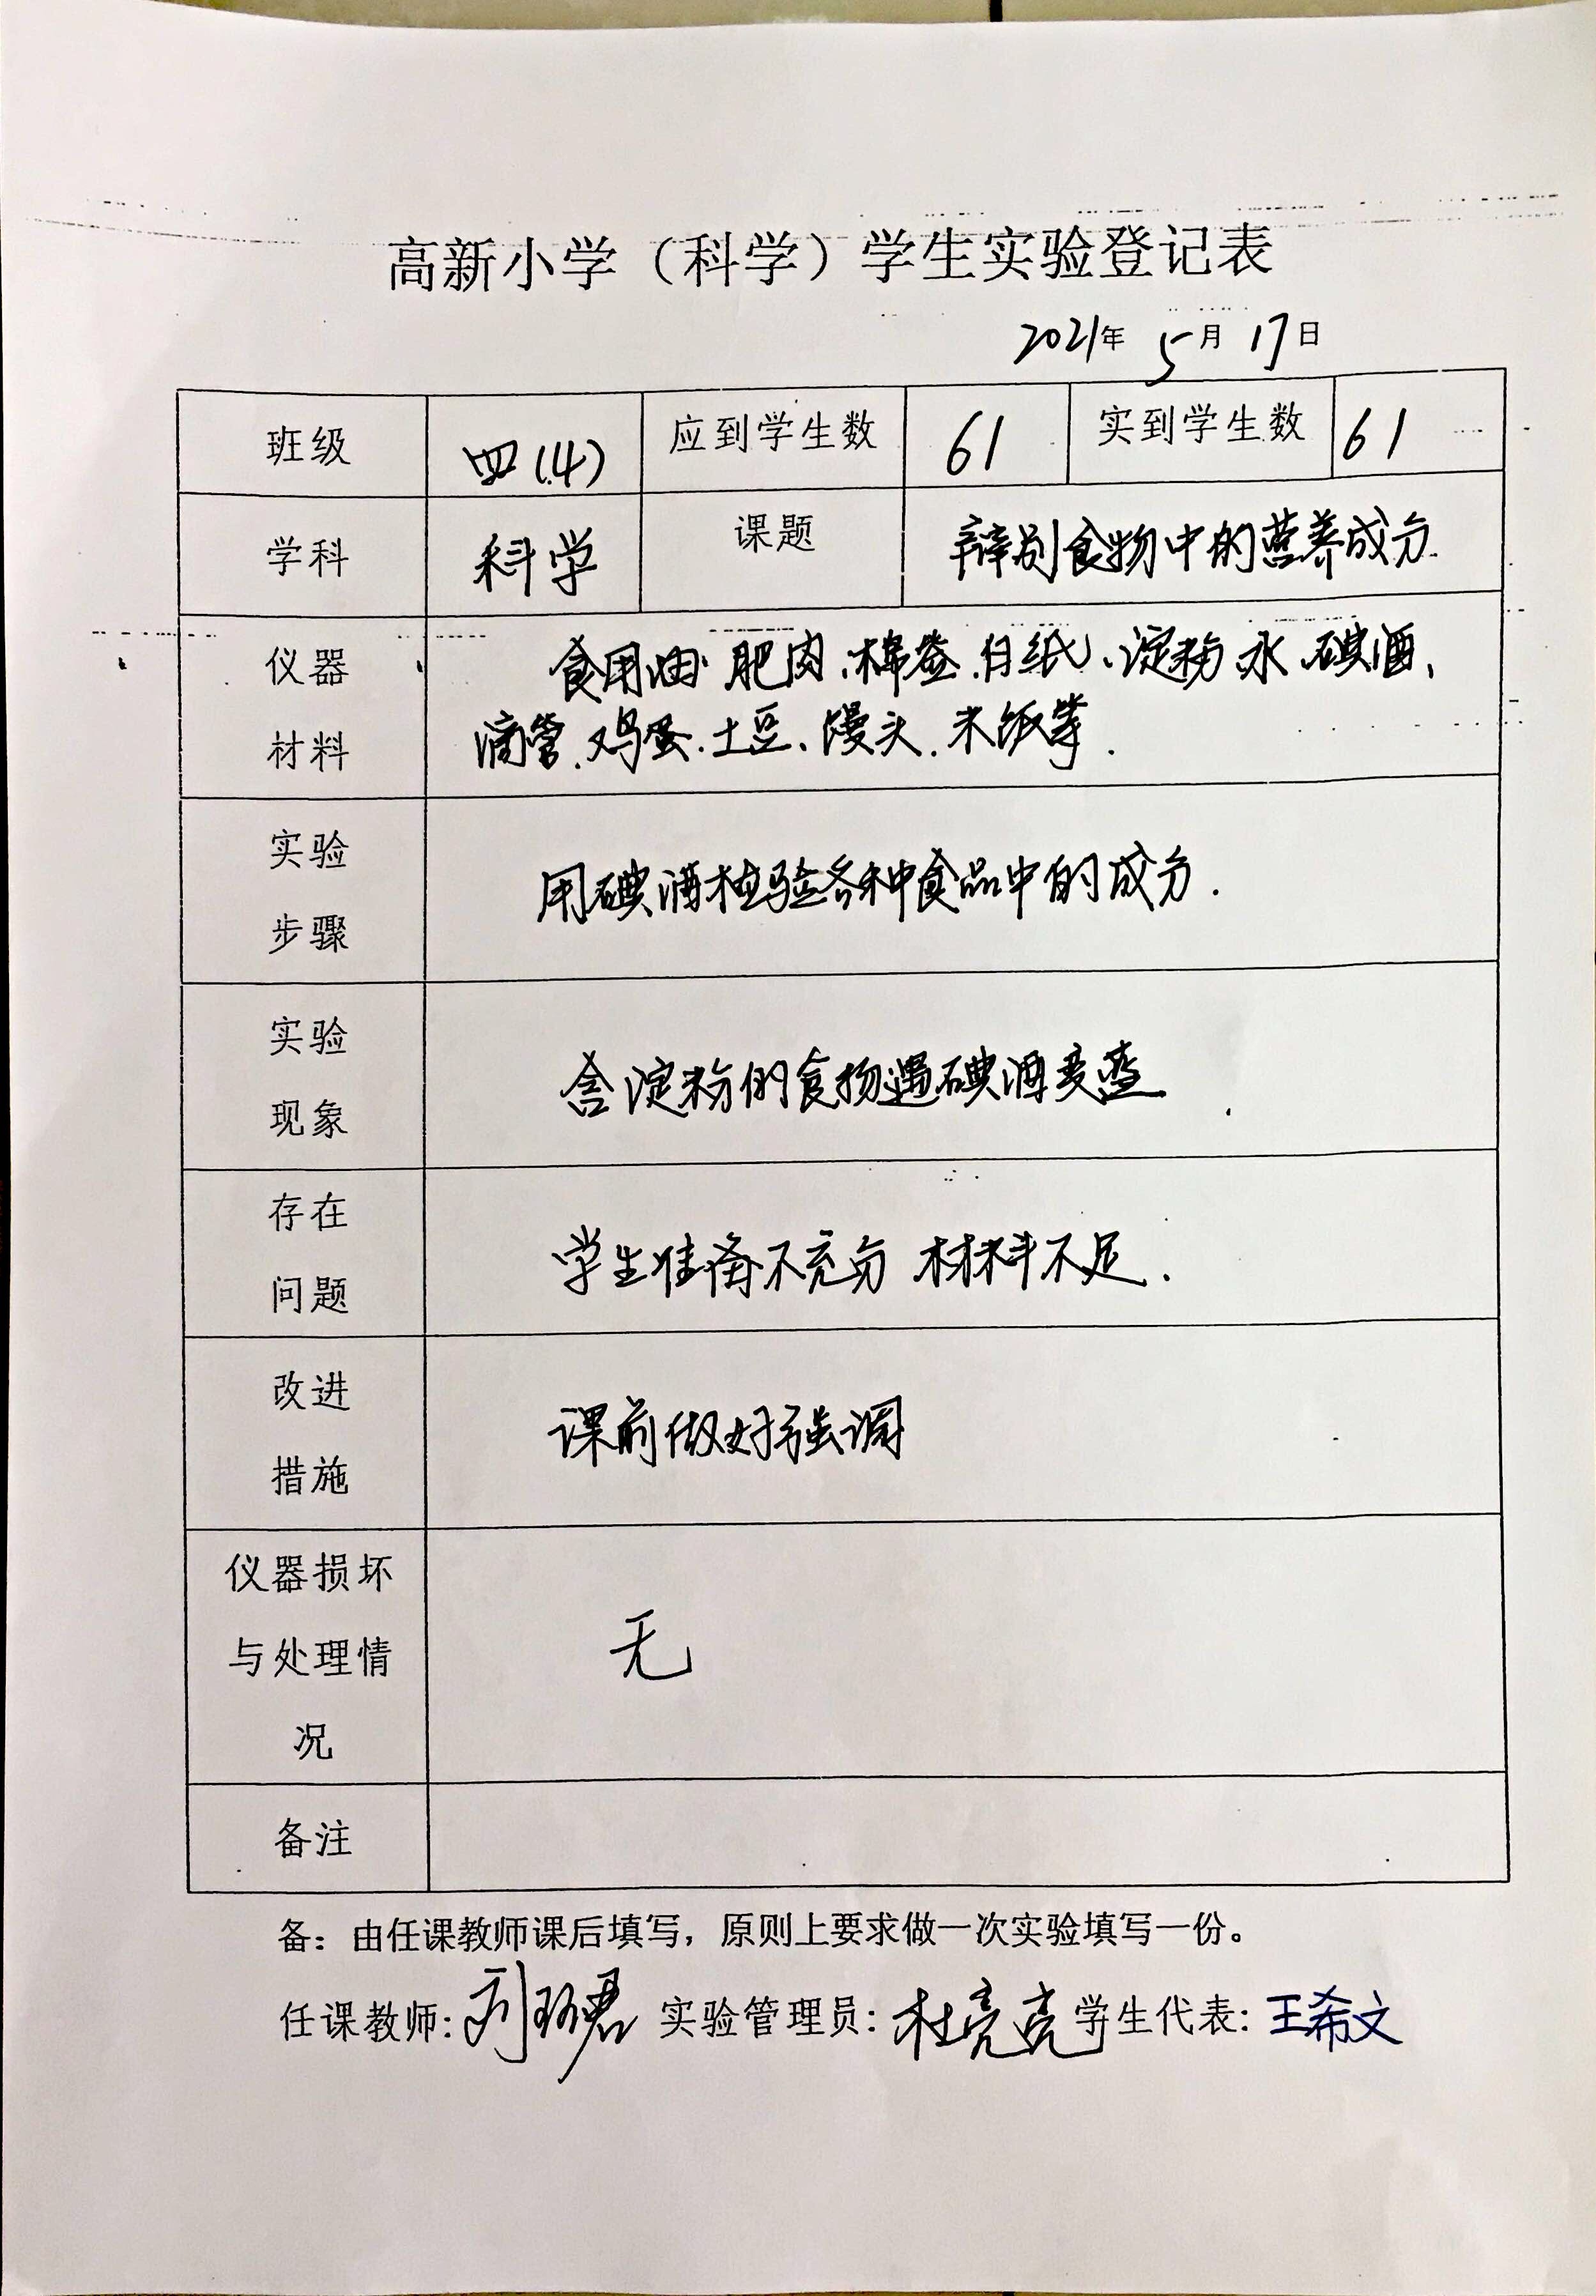 高新小学（科学）学生实验登记表
2021年 5月 17日
班级 四(4) 应到学生数 61 实到学生数 61
学科 科学 课题 辩别食物中的营养成分
仪器 食用油、肥肉、棉签、白纸、淀粉、水、碘酒、
材料 滴管、鸡蛋、土豆、馒头、米饭等.
实验
步骤
用碘酒检验各种食品中的成分.
实验
现象
含淀粉的食物遇碘酒变蓝
存在
问题
学生准备不充分 材料不足.
改进
措施
课前做好强调
仪器损坏
与处理情
况
无
备注
备：由任课教师课后填写，原则上要求做一次实验填写一份。
任课教师: 刘 君 实验管理员: 杜亮亮 学生代表: 王希文